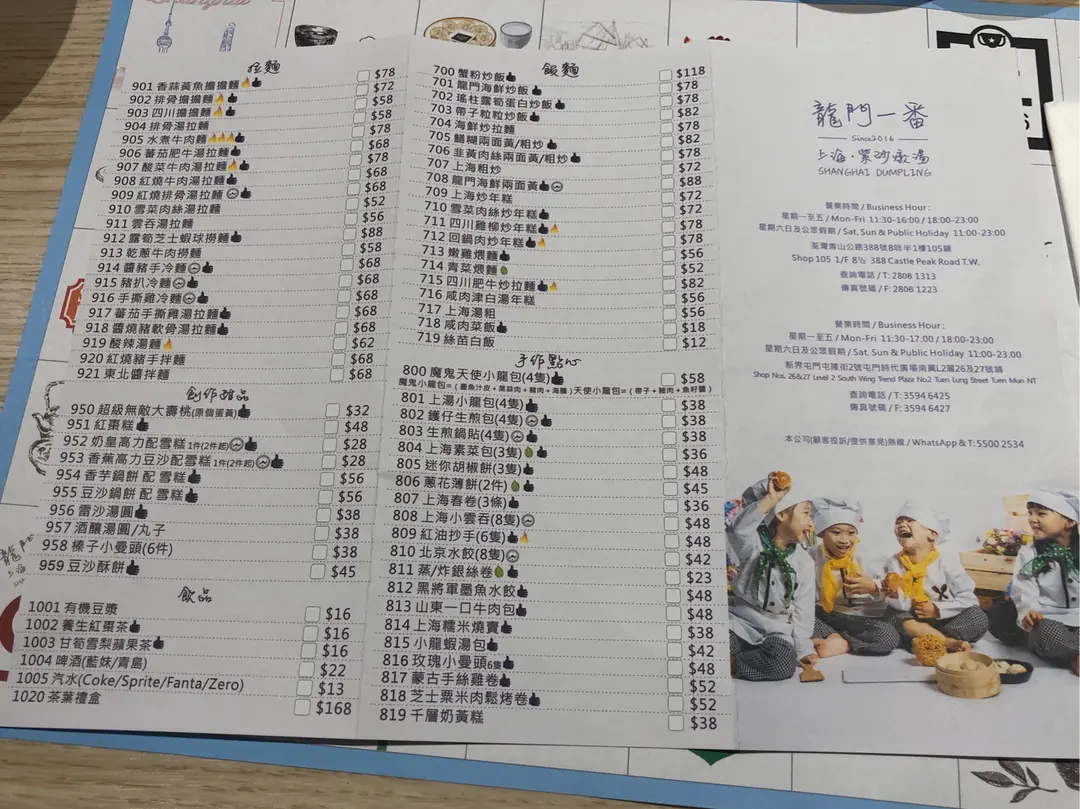 拉麵
901 香蒜黃魚擔擔麵 $78
902 排骨擔擔麵 $72
903 四川擔擔麵 $58
904 排骨湯拉麵 $58
905 水煮牛肉麵 $78
906 蕃茄肥牛湯拉麵 $68
907 酸菜牛肉湯拉麵 $78
908 紅燒牛肉湯拉麵 $68
909 紅燒排骨湯拉麵 $68
910 雪菜肉絲湯拉麵 $52
911 雲吞湯拉麵 $56
912 露筍芝士蝦球撈麵 $88
913 乾蔥牛肉撈麵 $58
914 醬豬手冷麵 $68
915 豬扒冷麵 $68
916 手撕雞冷麵 $68
917 蕃茄手撕雞湯拉麵 $68
918 醬燒豬軟骨湯拉麵 $68
919 酸辣湯麵 $62
920 紅燒豬手拌麵 $68
921 東北醬拌麵 $68
創作甜品
950 超級無敵大壽桃(原個蛋黃) $32
951 紅棗糕 $48
952 奶皇高力配雪糕 1件(2件起) $28
953 香蕉高力豆沙配雪糕 1件(2件起) $28
954 香芋鍋餅 配 雪糕 $56
955 豆沙鍋餅 配 雪糕 $56
956 雷沙湯圓 $38
957 酒釀湯圓/丸子 $38
958 榛子小曼頭(6件) $38
959 豆沙酥餅 $45
飲品
1001 有機豆漿 $16
1002 養生紅棗茶 $16
1003 甘筍雪梨蘋果茶 $16
1004 啤酒(藍妹/青島) $22
1005 汽水(Coke/Sprite/Fanta/Zero) $13
1020 茶葉禮盒 $168
飯麵
700 蟹粉炒飯 $118
701 龍門海鮮炒飯 $78
702 瑤柱露筍蛋白炒飯 $78
703 帶子粒粒炒飯 $82
704 海鮮炒拉麵 $78
705 鱔糊兩面黃/粗炒 $82
706 韭黃肉絲兩面黃/粗炒 $78
707 上海粗炒 $72
708 龍門海鮮兩面黃 $88
709 上海炒年糕 $72
710 雪菜肉絲炒年糕 $72
711 四川雞柳炒年糕 $78
712 回鍋肉炒年糕 $78
713 嫩雞煨麵 $56
714 青菜煨麵 $52
715 四川肥牛炒拉麵 $82
716 咸肉津白湯年糕 $56
717 上海湯粗 $56
718 咸肉菜飯 $18
719 絲苗白飯 $12
手作點心
800 魔鬼天使小龍包(4隻) $58
魔鬼小龍包=(墨魚汁皮+黑蒜肉+豬肉+海膽)天使小龍包=(帶子+豬肉+魚籽醬)
801 上湯小龍包(4隻) $38
802 鑊仔生煎包(4隻) $38
803 生煎鍋貼(4隻) $38
804 上海素菜包(3隻) $36
805 迷你胡椒餅(3隻) $48
806 蔥花薄餅(2件) $45
807 上海春卷(3條) $36
808 上海小雲吞(8隻) $48
809 紅油抄手(6隻) $48
810 北京水餃(8隻) $42
811 蒸/炸銀絲卷 $23
812 黑將軍墨魚水餃 $48
813 山東一口牛肉包 $48
814 上海糯米燒賣 $38
815 小龍蝦湯包 $42
816 玫瑰小曼頭6隻 $48
817 蒙古手絲雞卷 $52
818 芝士粟米肉鬆烤卷 $52
819 千層奶黃糕 $38
龍門一番
Since2016
上海·紫沙燉湯
SHANGHAI DUMPLING
營業時間 / Business Hour :
星期一至五 / Mon-Fri 11:30-16:00 / 18:00-23:00
星期六日及公眾假期 / Sat, Sun & Public Holiday 11:00-23:00
荃灣青山公路388號8咪半1樓105鋪
Shop 105 1/F 8½ 388 Castle Peak Road T.W.
查詢電話 / T: 2806 1313
傳真號碼 / F: 2806 1223
營業時間 / Business Hour :
星期一至五 / Mon-Fri 11:30-17:00 / 18:00-23:00
星期六日及公眾假期 / Sat, Sun & Public Holiday 11:00-23:00
新界屯門屯隆街2號屯門時代廣場南翼L2層26及27號舖
Shop Nos. 26&27 Level 2 South Wing Trend Plaza No.2 Tuen Lung Street Tuen Mun NT
查詢電話 / T: 3594 6425
傳真號碼 / F: 3594 6427
本公司(顧客投訴/提供意見)熱線 / WhatsApp & T: 5500 2534